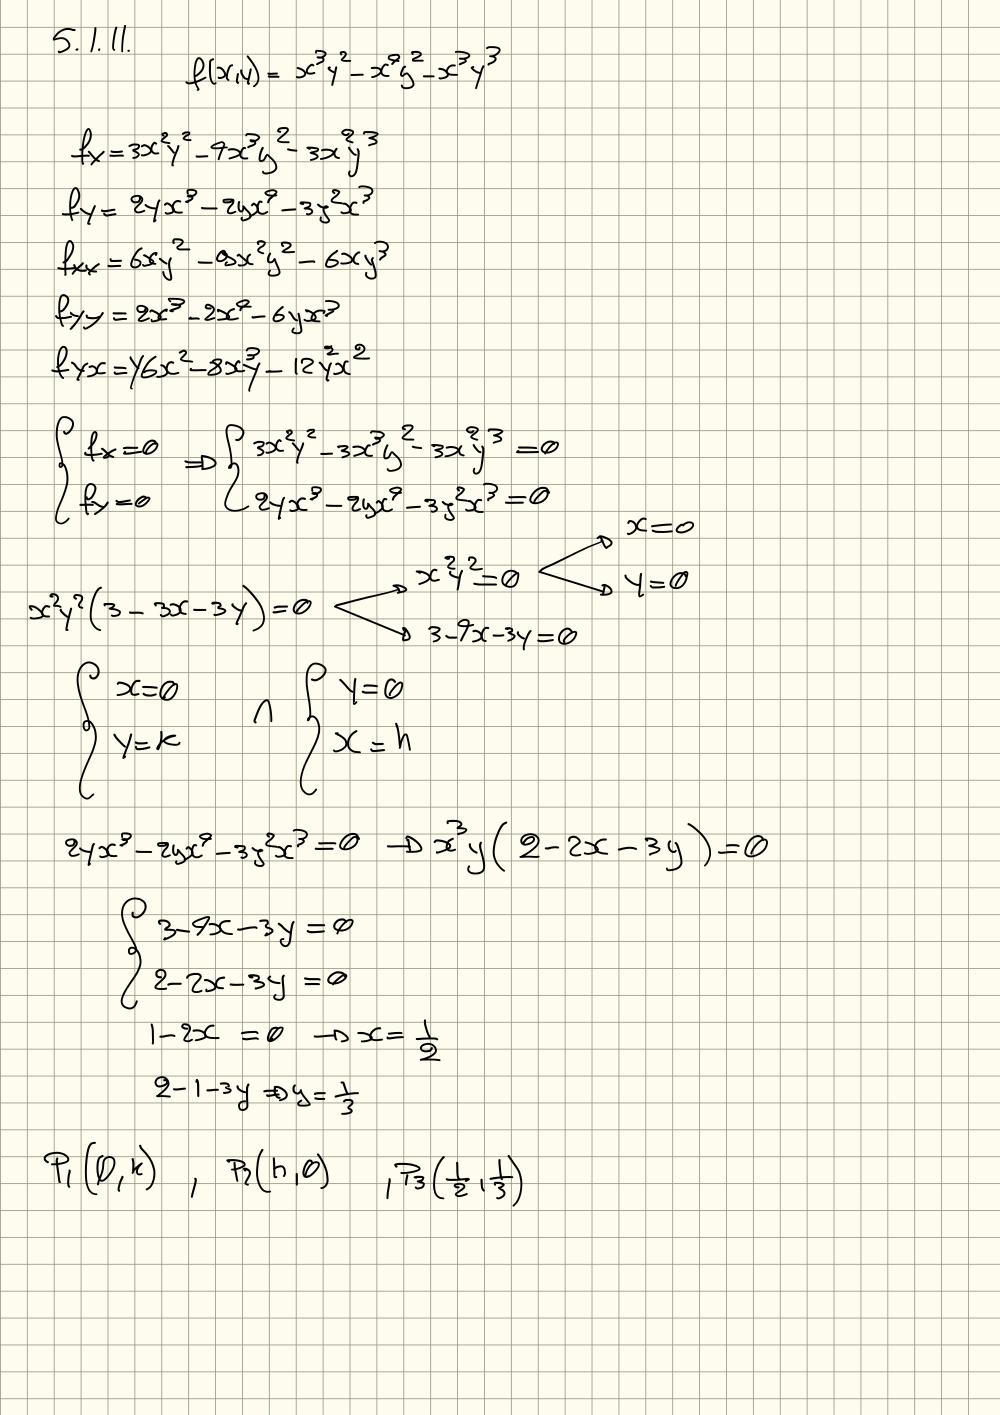 5.1.11.
f(x,y) = x³y² - x⁴y² - x³y³
fx = 3x²y² - 4x³y² - 3x²y³
fy = 2yx³ - 2yx⁴ - 3y²x³
fxx = 6xy² - 8x²y² - 6xy³
fyy = 2x³ - 2x⁴ - 6yx³
fyx = y6x² - 8x³y - 12y²x²
{ fx = 0 ⇒ { 3x²y² - 3x³y² - 3x²y³ = 0
{ fy = 0 { 2yx³ - 2yx⁴ - 3y²x³ = 0
x = 0
x²y² = 0
y = 0
x²y²(3 - 3x - 3y) = 0
3 - 4x - 3y = 0
{ x = 0 ∩ { y = 0
{ y = k { x = h
2yx³ - 2yx⁴ - 3y²x³ = 0 → x³y(2 - 2x - 3y) = 0
{ 3 - 4x - 3y = 0
{ 2 - 2x - 3y = 0
1 - 2x = 0 → x = 1/2
2 - 1 - 3y ⇒ y = 1/3
P₁(0,k) , P₂(h,0) , P₃(1/2, 1/3)